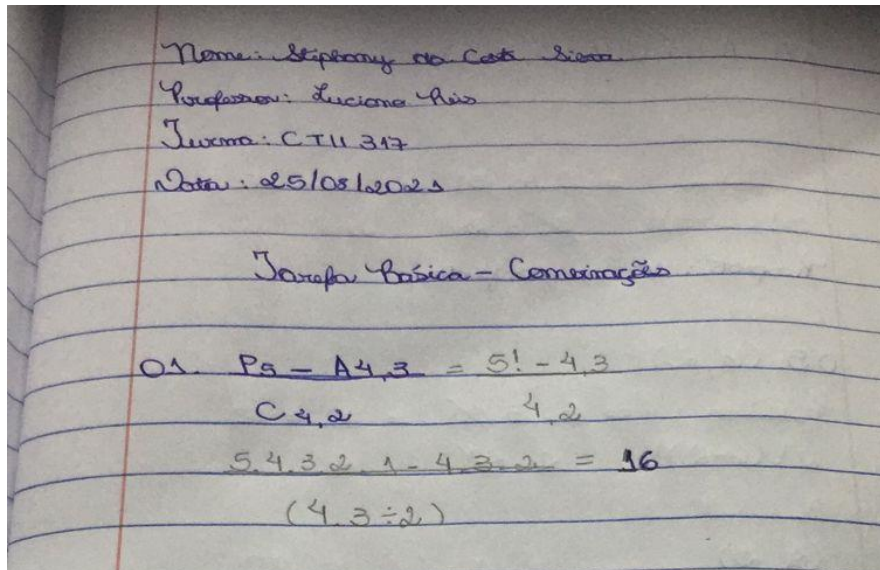 Nome: Stiphany da Costa Sierra
Professor: Luciana Reis
Turma: CTII 317
Data: 25/08/2021
Tarefa Básica - Combinações
01. P5 - A4,3 = 5! - 4,3
C4,2 4,2
5.4.3.2.1 - 4.3.2 = 16
(4.3÷2)